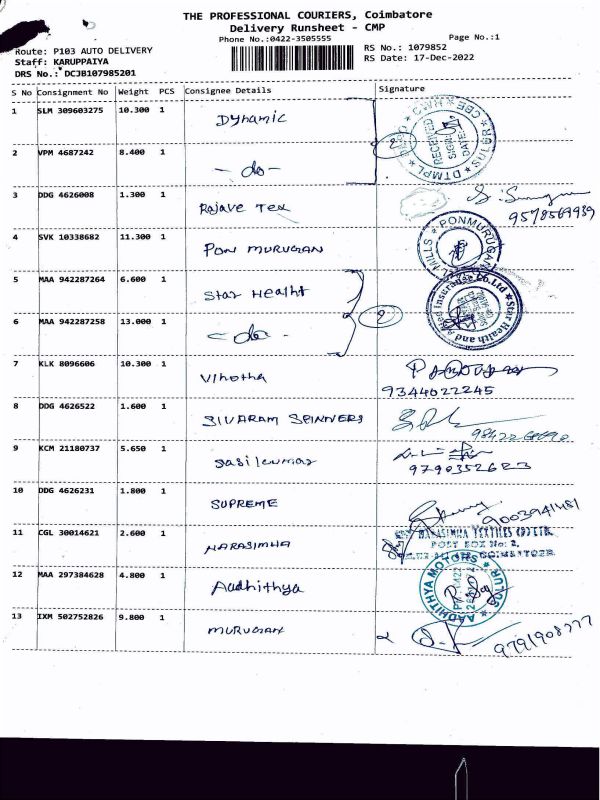 THE PROFESSIONAL COURIERS, Coimbatore
Delivery Runsheet - CMP
Phone No.:0422-3505555
Page No.:1
Route: P103 AUTO DELIVERY
RS No.: 1079852
Staff: KARUPPAIYA
RS Date: 17-Dec-2022
DRS No.: DCJB107985201
S No Consignment No Weight PCS Consignee Details Signature
1 SLM 309603275 10.300 1 Dynamic
DTMPL
RECEIVED
SIGN
DATE
2 VPM 4687242 8.400 1 - do - 2
3 DDG 4626008 1.300 1 Rajave Tex
9578569939
4 SVK 10338682 11.300 1 PON MURUGAN
PONMURUGAN MILLS
5 MAA 942287264 6.600 1 Star Healht
Star Health and Allied Insurance Co.Ltd
6 MAA 942287258 13.000 1 - do - 2
7 KLK 8096606 10.300 1 Vihotha
9344022245
8 DDG 4626522 1.600 1 SIVARAM SPINNERS
9 KCM 21180737 5.650 1 Sasikumar
9790352623
10 DDG 4626231 1.800 1 SUPREME
9003941481
11 CGL 30014621 2.600 1 NARASIMHA
NARASIMHA TEXTILES (P) LTD.
POST BOX No: 2,
COIMBATORE
12 MAA 297384628 4.800 1 Aadhithya
AADHITHYA MOTORS
SULUR
13 IXM 502752826 9.800 1 MURUGAN
9791908777